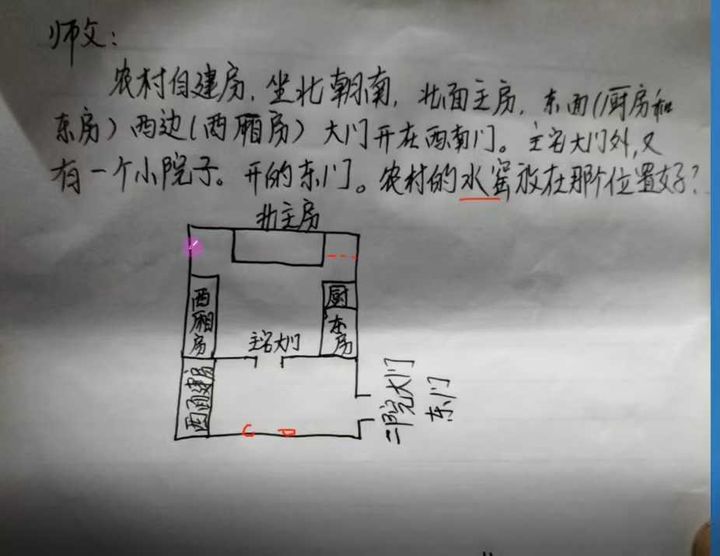 师父:
农村自建房,坐北朝南,北面主房,东面(厨房和
东房)西边(西厢房)大门开在西南门。主宅大门外,又
有一个小院子。开的东门。农村的水窖放在那个位置好?
北主房
西厢房
厨
东房
主宅大门
西面建房
二院大门
东门